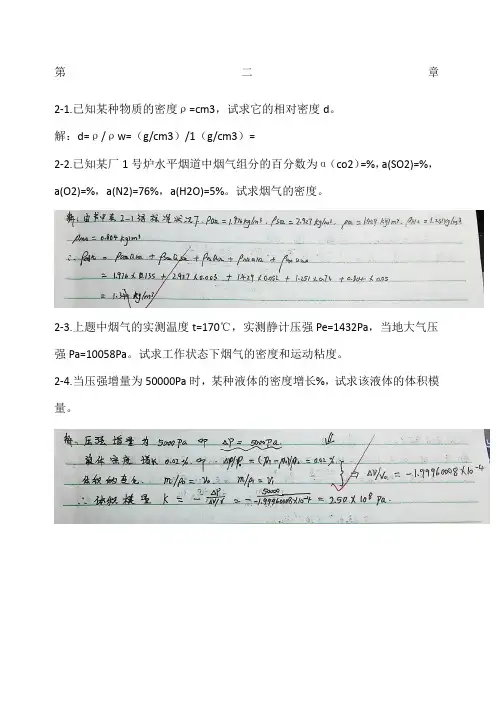 第二章
2-1.已知某种物质的密度ρ=cm3，试求它的相对密度d。
解：d=ρ/ρw=（g/cm3）/1（g/cm3）=
2-2.已知某厂1号炉水平烟道中烟气组分的百分数为α（co2）=%，
a(SO2)=%，a(O2)=%，a(N2)=76%，a(H2O)=5%。试求烟气的密度。
解：由书中表2-1得标准状况下，ρco2=1.976kg/m³，ρso2=2.927kg/m³，ρo2=1.429kg/m³，ρN2=1.251kg/m³
ρH2O=0.804kg/m³
= 1.976×0.135 + 2.927×0.003 + 1.429×0.052 + 1.251×0.76 + 0.804×0.05
2-3.上题中烟气的实测温度t=170℃，实测静计压强Pe=1432Pa，当地大气压
强Pa=10058Pa。试求工作状态下烟气的密度和运动粘度。
2-4.当压强增量为50000Pa时，某种液体的密度增长%，试求该液体的体积模
量。
解：压强增量为 5000Pa 即 ΔP=5000Pa.
液体密度增长0.02% 即 =0.02%
m/ρ1=V0. m/ρ2=V1 ΔV/V0=-1.99960008×10-4
∴体积模量 K = -ΔP/(ΔV/V) = -50000/(-1.99960008×10-4) = 2.50×10⁸ Pa.